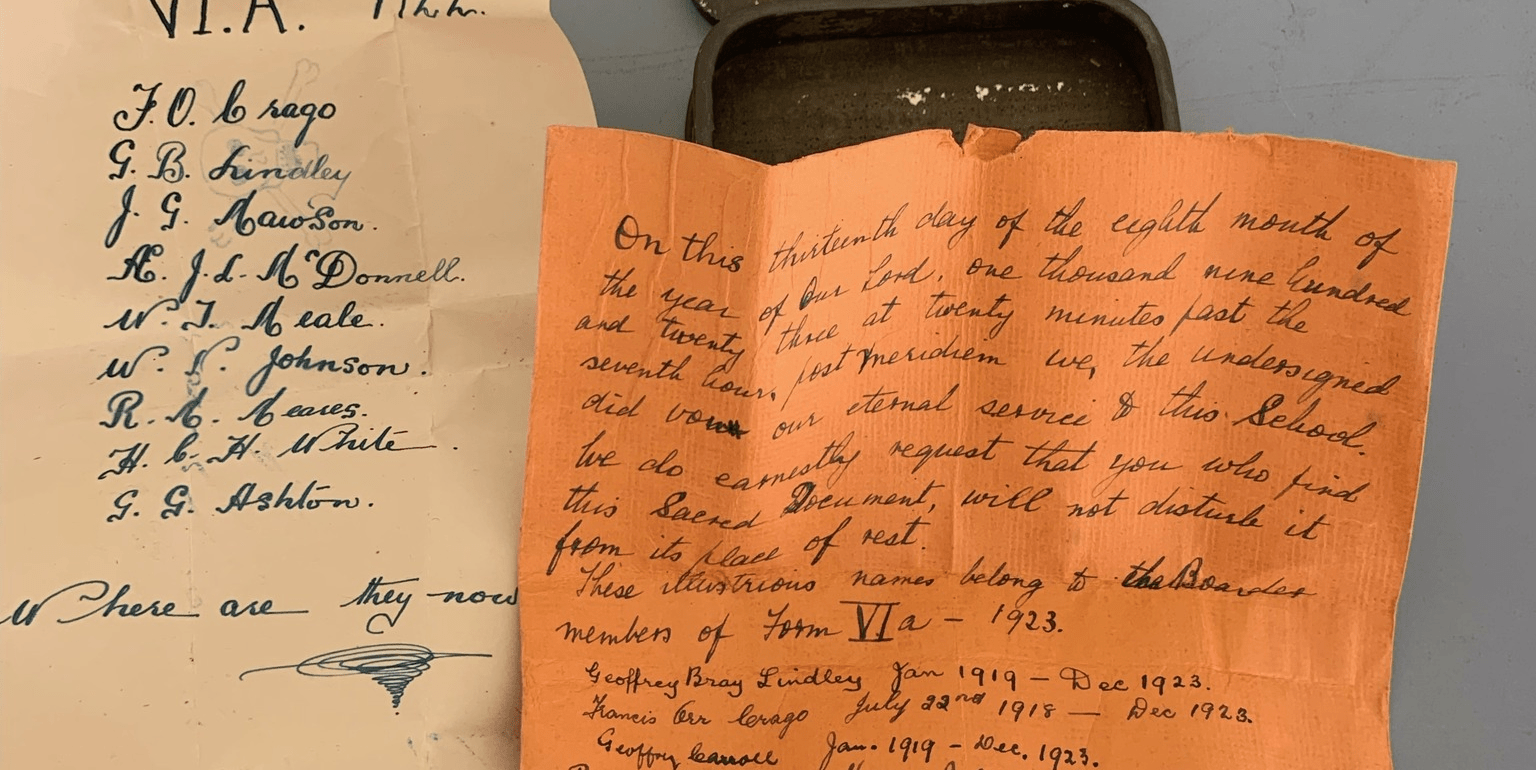 VI.A.
F. O. Crago
G. B. Lindley
J. G. Mawson.
A. J. L. McDonnell.
W. T. Meale.
W. N. Johnson.
R. M. Meares.
H. C. H. White.
G. G. Ashton.
Where are they now
On this thirteenth day of the eighth month of
the year of Our Lord, one thousand nine hundred
and twenty three at twenty minutes past the
seventh hour, post meridiem we, the undersigned
did vow our eternal service to this School.
We do earnestly request that you who find
this Sacred Document, will not disturb it
from its place of rest.
These illustrious names belong to the Boarder
members of Form VIa - 1923.
Geoffrey Bray Lindley Jan 1919 - Dec 1923.
Francis Orr Crago July 22nd 1918 - Dec 1923.
Geoffry Carroll Jan. 1919 - Dec. 1923.